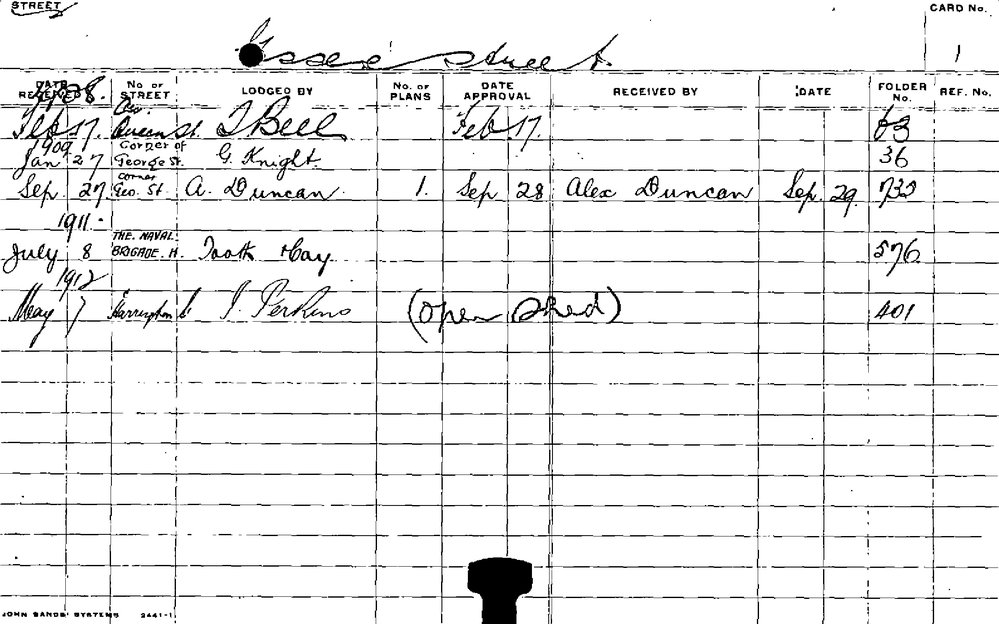 STREET CARD No.
Essex Street. 1
DATE RECEIVED No. OF STREET LODGED BY No. OF PLANS DATE APPROVAL RECEIVED BY DATE FOLDER No. REF. No.
1908.
Feb 17. Cor. Queen St. T Bell Feb 17. 63
1909
Jan 27 Corner of George St. G. Knight. 36
Sep 27 corner Geo. St. A. Duncan. 1. Sep 28 Alex Duncan Sep. 29. 732
1911.
July 8 THE. NAVAL. BRIGADE. H. Tooth Hay 576
1912
May 7 Harrington S. J. Perkins (Open Shed) 401
JOHN SANDS SYSTEMS 2441-1